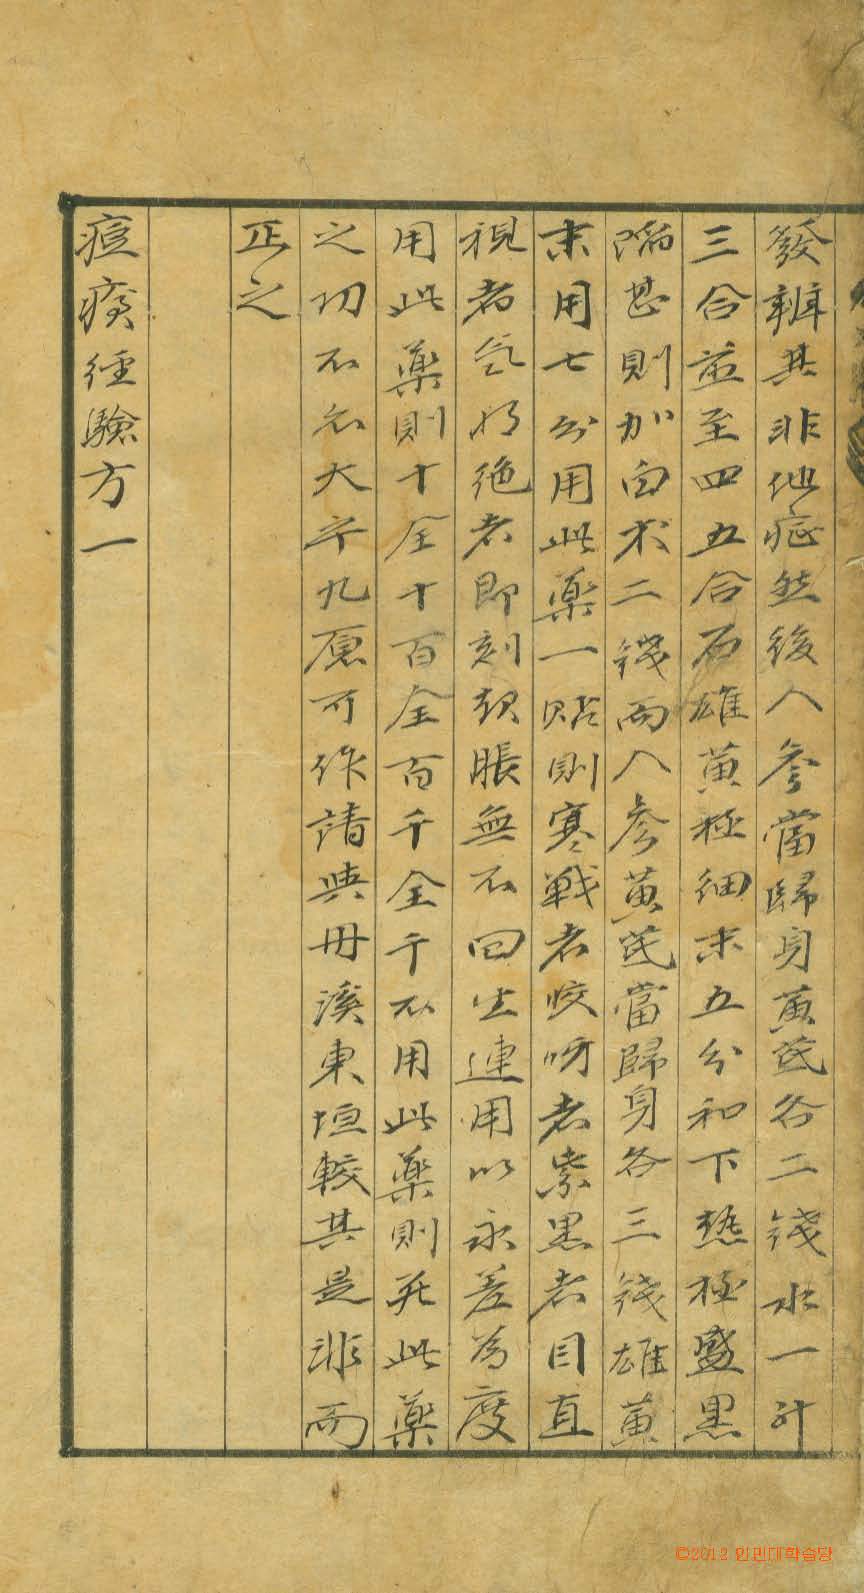 發辨其非他症然後人參當歸身黃芪各二錢水一升
三合煎至四五合石雄黃極細末五分和下熱極盛黑
陷甚則加白朮二錢而人參黃芪當歸身各三錢雄黃
末用七分用此藥一貼則寒戰者咬呀者紫黑者目直
視者气將絶者即刻起脹無不回生連用以永差為度
用此藥則十全十百全百千全千不用此藥則死此藥
之功不亦大乎九原可作請與丹溪東垣較其是非而
正之
痘疹経驗方一
©2012 인민대학습당